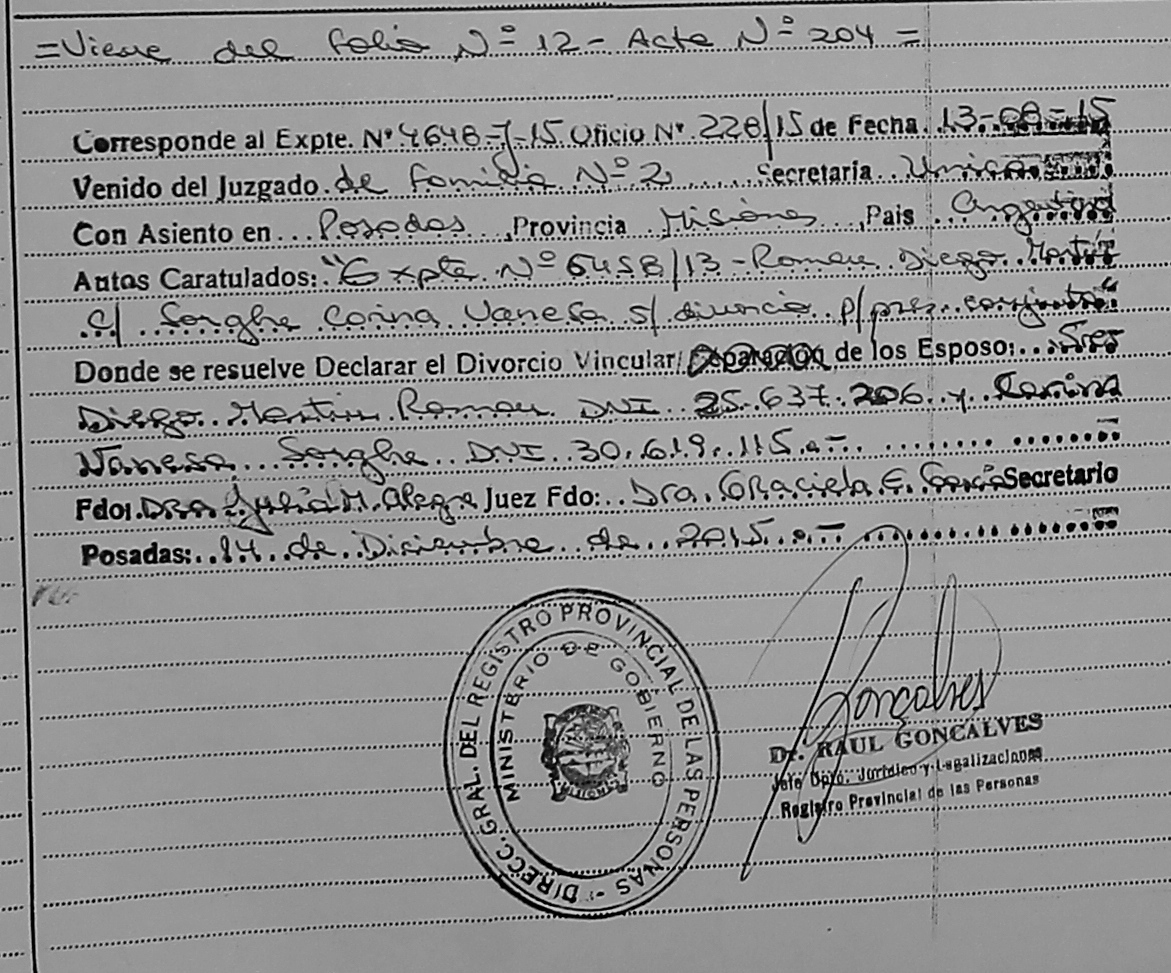 =Viene del folio Nº 12 - Acta Nº 204 =
Corresponde al Expte. Nº 4648-J-15 Oficio Nº 228/15 de Fecha 13-08-15
Venido del Juzgado de familia Nº 2 Secretaria Unica
Con Asiento en Posadas, Provincia Misiones, Pais Argentina
Autos Caratulados: "Expte Nº 6458/13 - Romeu Diego Martín
c/ Sorghe Corina Vanesa s/ divorcio p/pres. conjunta"
Donde se resuelve Declarar el Divorcio Vincular/ Separacion de los Esposo: Sres
Diego Martin Romeu DNI 25.637.206 y Corina
Vanesa Sorghe DNI 30.619.115.=
Fdo: Dra Julia M. Alegre Juez Fdo: Dra. Graciela E. Secretario
Posadas: 14 de Diciembre de 2015.=
DIRECC. GRAL. DEL REGISTRO PROVINCIAL DE LAS PERSONAS
MINISTERIO DE GOBIERNO
MISIONES
Gonçalves
Dr. RAUL GONCALVES
Jefe Dpto. Jurídico y Legalizaciones
Registro Provincial de las Personas